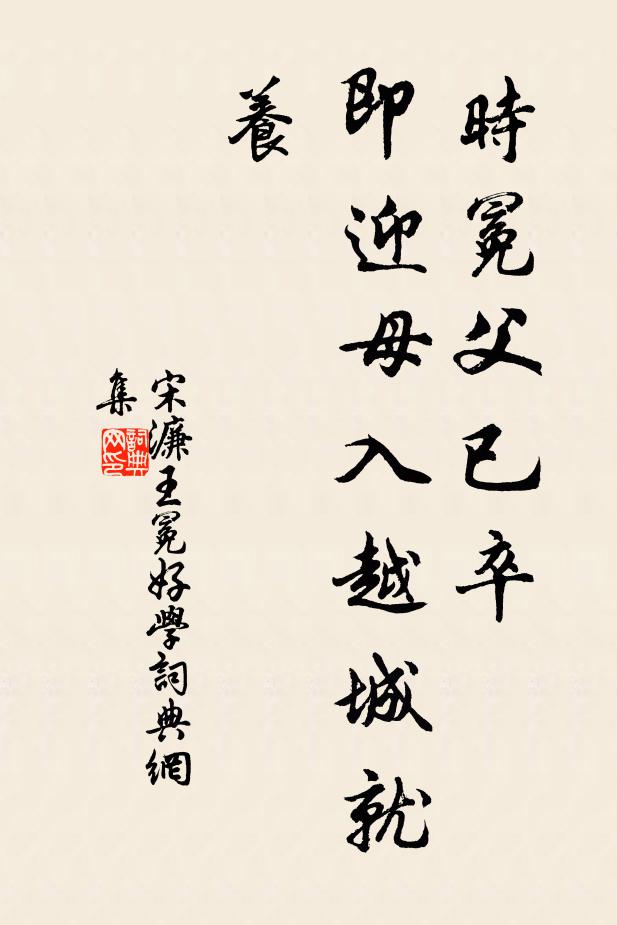 時冕父已卒
即迎母入越城就
養
宋濂王冕好學詞典網
集
詞典
网印